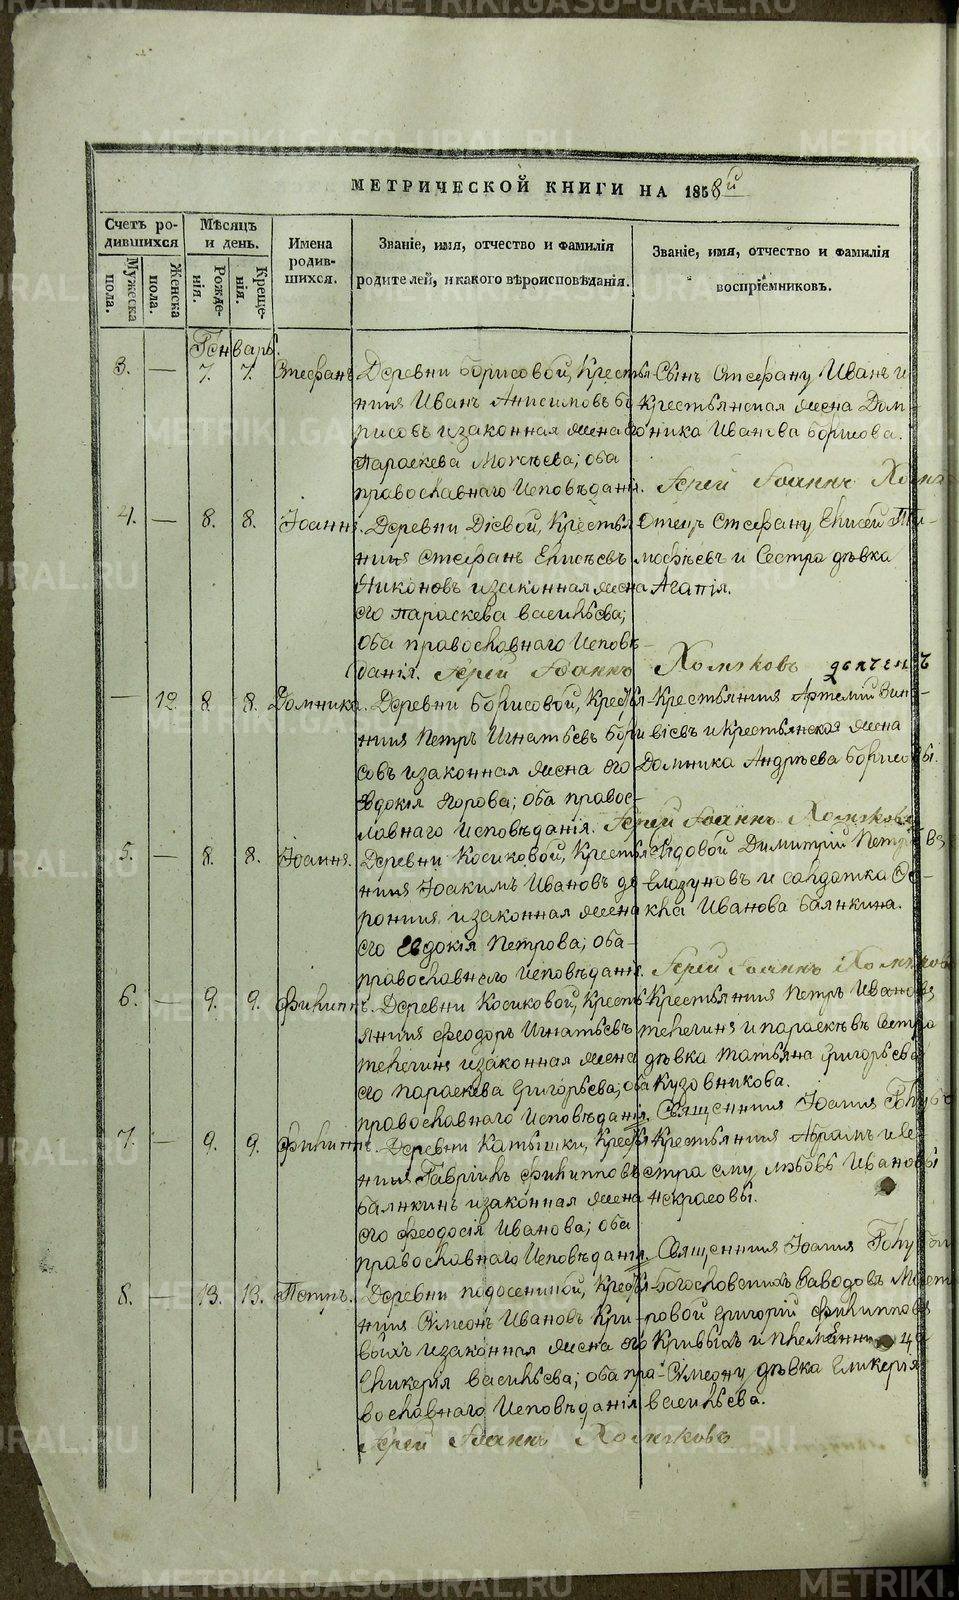 МЕТРИЧЕСКОЙ КНИГИ НА 1858й
Счетъ родившихся
Мужеска пола.
Женска пола.
Мѣсяцъ и день.
Рожденія.
Крещенія.
Имена родившихся.
Званіе, имя, отчество и фамилія родителей, и какого вѣроисповѣданія.
Званіе, имя, отчество и фамилія воспріемниковъ.
Генварь.
3. — 7. 7. Стефанъ
Деревни Борисовой, Крестья-
нинъ Иванъ Анисимовъ Бо-
рисовъ и законная жена его
Параскева Мокѣева; оба
православнаго Исповѣданія.
Сынъ Стефану Иванъ и
Крестьянская жена Дом-
ника Иванова Борисова.
Іерей Іоаннъ
4. — 8. 8. Іоаннъ.
Деревни Дієвой, Крестья-
нинъ Стефанъ Елисѣевъ
Никоновъ и законная жена
его Параскева Васильева;
оба православнаго Исповѣ-
данія. Іерей Іоаннъ Хомяковъ
Отецъ Стефану Елисей Ти-
мофѣевъ и Сестра дѣвка
Агапія.
— 12. 8. 8. Домника.
Деревни Борисовой, Крестья-
нинъ Петръ Игнатьевъ Бори-
совъ и законная жена его
Евдокія Егорова; оба правос-
лавнаго Исповѣданія. Іерей Іоаннъ Хомяковъ
Крестьянинъ Артемій
и Крестьянская жена
Домника Андрѣева Борисовы.
5. — 8. 8. Іоаннъ.
Деревни Косиковой, Крестья-
нинъ Іоакимъ Ивановъ До-
ронинъ и законная жена
его Евдокія Петрова; оба
православнаго Исповѣданія.
Рядовой Димитрій Петровъ
Глазуновъ и солдатка Ѳе-
кла Иванова Балякина.
Іерей Іоаннъ Хомяковъ
6. — 9. 9. Филиппъ.
Деревни Косиковой, Кресть-
янинъ Феодоръ Игнатьевъ
Телегинъ и законная жена
его Параскева Григорьева; оба
православнаго Исповѣданія.
Крестьянинъ Петръ Ивановъ
Телегинъ и Параскѣвѣ Сестра
дѣвка Татьяна Григорьева
Кузовникова.
Священникъ Іоаннъ
7. — 9. 9. Филиппъ.
Деревни Катышки, Крестья-
нинъ Гавріилъ Филипповъ
Балякинъ и законная жена
его Феодосія Иванова; оба
православнаго Исповѣданія.
Крестьянинъ Абрамъ и се-
стра ему Любовь Ивановы
Некрасовы.
Священникъ Іоаннъ
8. — 13. 13. Петръ.
Деревни Подосениной, Крестья-
нинъ Симеонъ Ивановъ Кри-
выхъ и законная жена его
Гликерія Васильева; оба пра-
вославнаго Исповѣданія.
Іерей Іоаннъ Хомяковъ
Богословскихъ Заводовъ Масте-
ровой Григорій Филипповъ
Кривыхъ и племянница
Симеону дѣвка Гликерія
Васильева.
METRIKI.GASO-URAL.RU